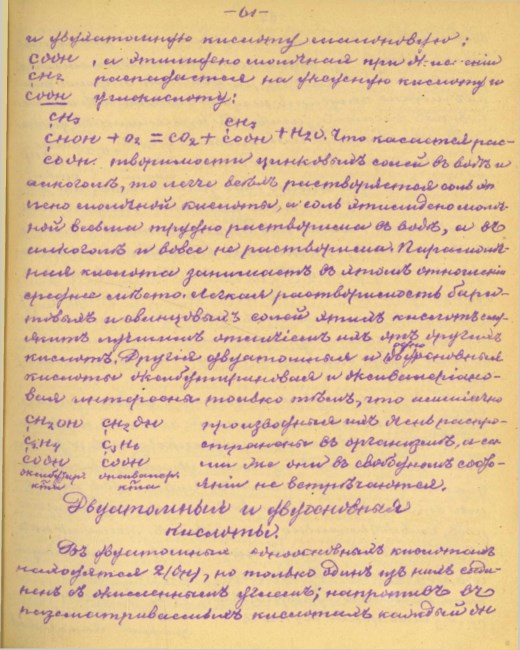 -61-
и двуатомную кислоту малоновую:
COOH , а этилидено молочная при окис-нии
CH2 распадается на уксусную кислоту и
COOH углекислоту:
CH3 CH3
CHOH + O2 = CO2 + COOH + H2O. Что касается рас-
COOH. творимости цинковыхъ солей въ водѣ и
алкоголѣ, то легче всѣхъ растворяется соль эти
лено молочной кислоты, а соль этилидено молоч
ной весьма трудно растворима въ водѣ, а въ
алкоголѣ и вовсе не растворима. Парамолоч-
ная кислота занимаетъ въ этомъ отношеніи
среднее мѣсто. Легкая растворимость бари-
товыхъ и свинцовыхъ солей этихъ кислотъ слу
житъ лучшимъ отличіемъ ихъ отъ другихъ
кислотъ. Другія двуатомныя и основныя
кислоты оксибутириновая и оксивалеріано-
вая интересны только тѣмъ, что
CH2OH CH2OH производныя ихъ очень распро-
C2H4 C3H6 странены въ организмѣ, а са-
COOH COOH ми же они въ свободномъ состо-
оксибутир. оксивалер. яніи не встрѣчаются.
к-та к-та
Двуатомныя и двуосновныя
кислоты.
Въ двуатомныхъ одноосновныхъ кислотахъ
находятся 2(OH), но только одинъ изъ нихъ соеди
ненъ съ окисленнымъ углемъ; напротивъ въ
разсматриваемыхъ кислотахъ каждый OH